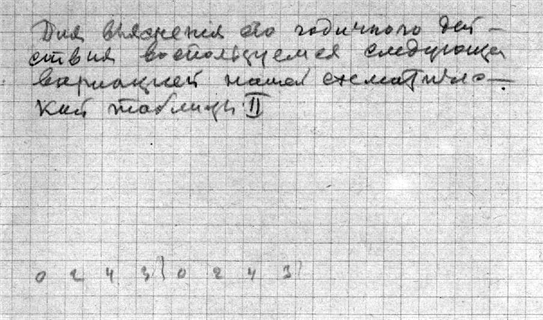 Для выяснения его годичного дей-
ствия воспользуемся следующей
вариацией нашей схематичес-
кой таблицы II
0 2 4 3 0 2 4 3